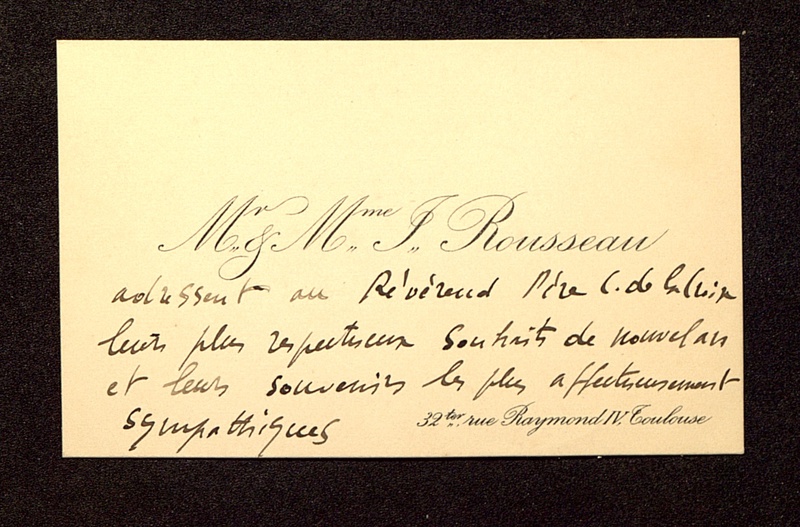 Mr. & Mme. J. Rousseau
adressent au Révérend Père C. de la Croix
leurs plus respectueux souhaits de nouvel an
et leurs souvenirs les plus affectueusement
sympathiques
32ter. rue Raymond IV. Toulouse